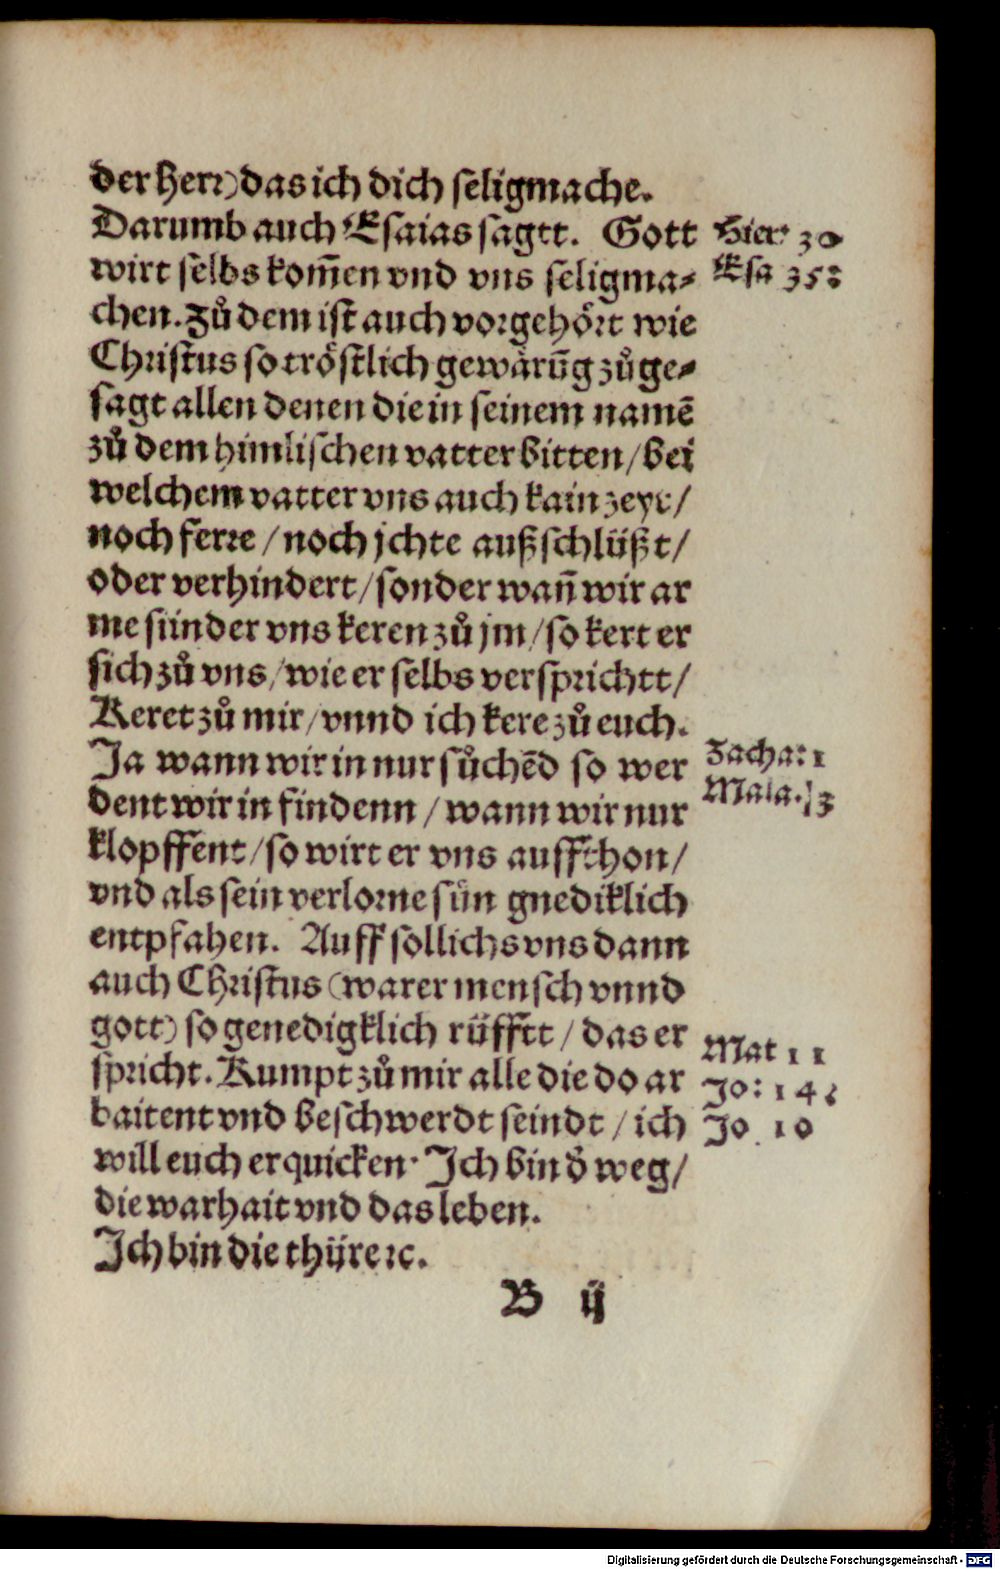 der Herr) das ich dich seligmache.
Darumb auch Esaias sagtt. Gott
wirt selbs kom̄en vnd vns seligma⸗
chen. Zů dem ist auch vorgehört wie
Christus so tröstlich gewärūg zůge⸗
sagt allen denen die in seinem namē
zů dem himlischen vatter bitten / bei
welchem vatter vns auch kain zeyt /
noch ferre / noch jchte außschlüßt /
oder verhindert / sonder wan̄ wir ar
me sünder vns keren zů jm / so kert er
sich zů vns / wie er selbs versprichtt /
Keret zů mir / vnnd ich kere zů euch.
Ja wann wir in nur sůchēd so wer
dent wir in findenn / wann wir nur
klopffent / so wirt er vns auffthon /
vnd als sein verlorne sün gnediklich
entpfahen. Auff sollichs vns dann
auch Christus (warer mensch vnnd
gott) so genedigklich rüfftt / das er
spricht. Kumpt zů mir alle die do ar
baitent vnd beschwerdt seindt / ich
will euch erquicken. Ich bin d̕ weg /
die warhait vnd das leben.
Ich bin die thüre ꝛc.
B ij
Hier: 30
Esa 35:
Zacha: 1
Mala. 3
Mat 11
Jo: 14:
Jo. 10
Digitalisierung gefördert durch die Deutsche Forschungsgemeinschaft - DFG